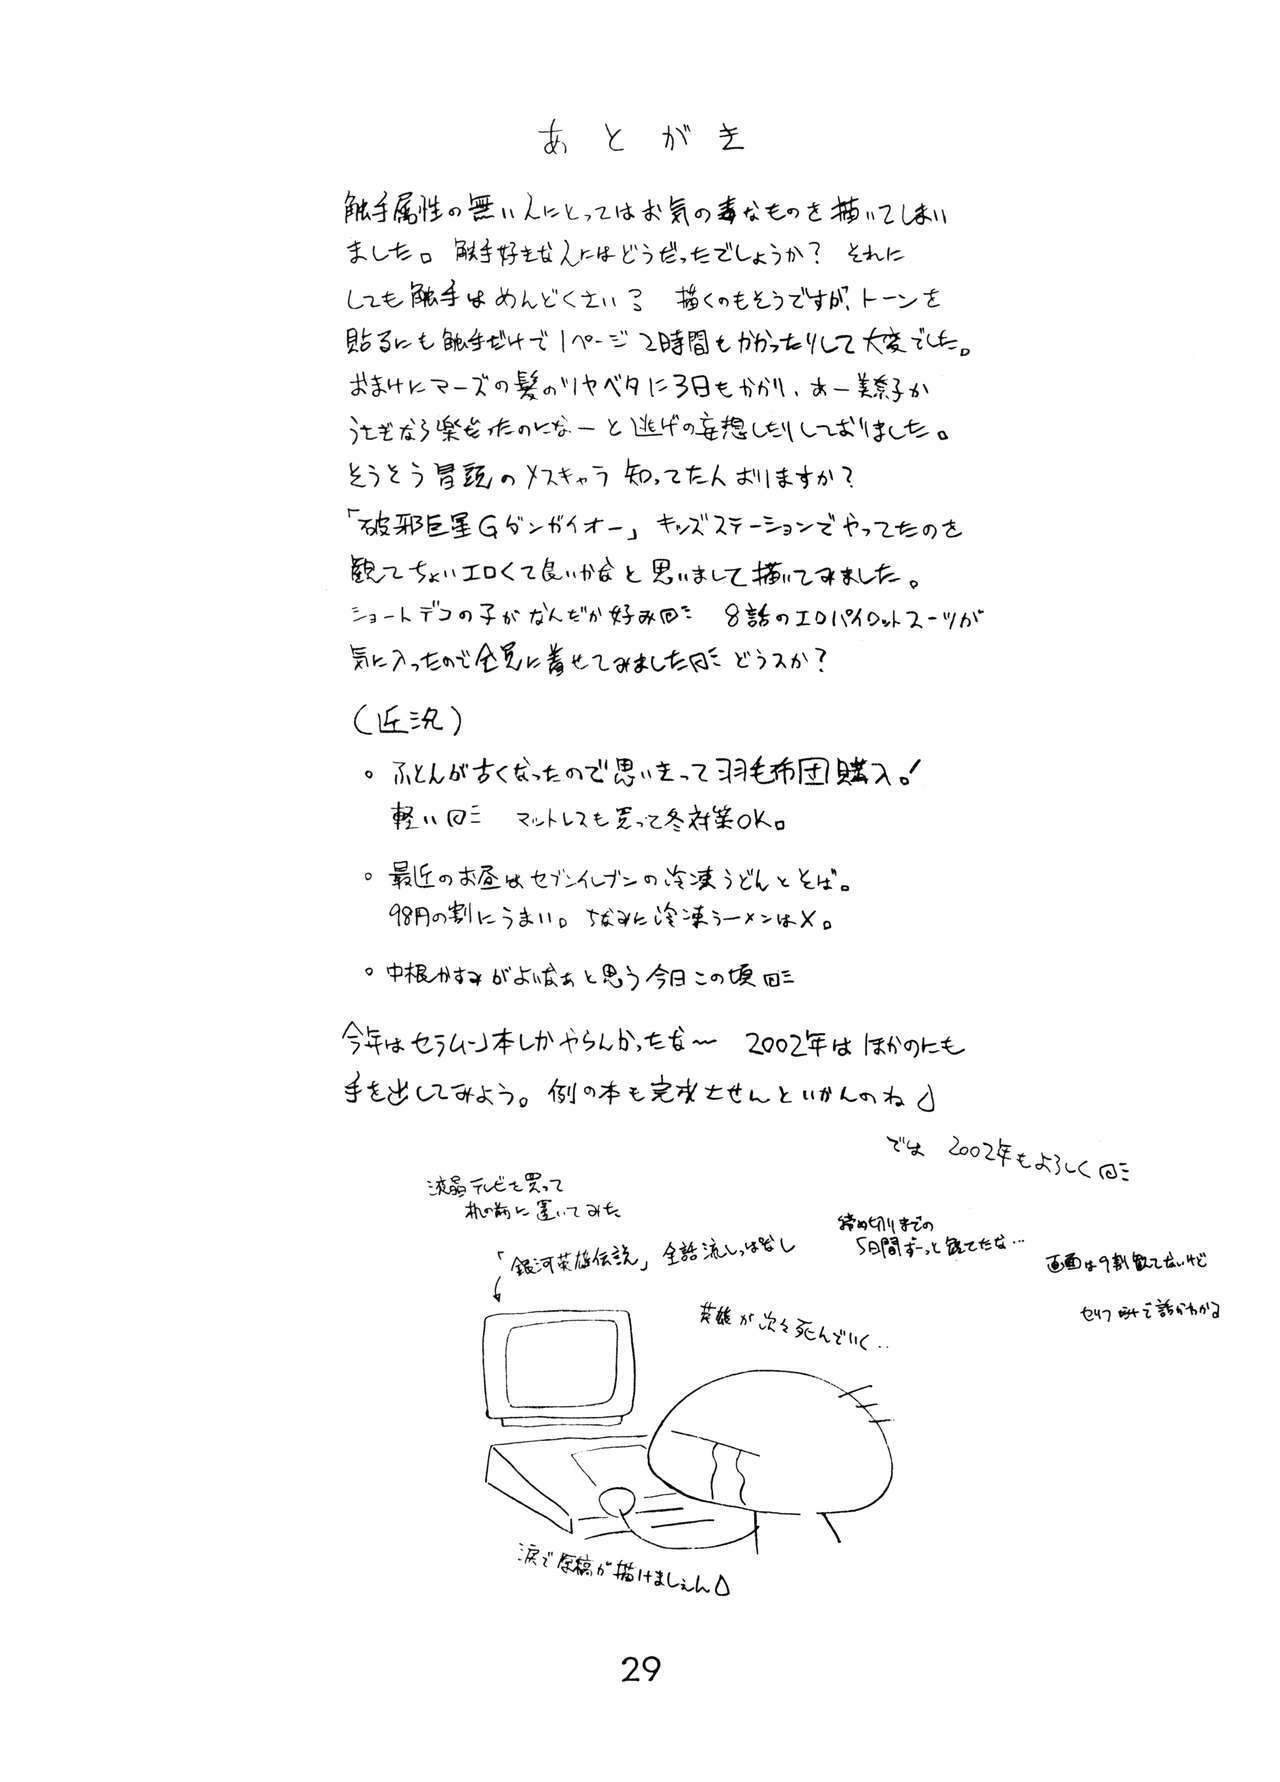 あとがき
触手属性の無い人にとってはお気の毒なものを描いてしまい
ました。触手好きな人にはどうだったでしょうか? それに
しても触手はめんどくさいろ 描くのもそうですが、トーンを
貼るにも触手だけで1ページ2時間もかかったりして大変でした。
おまけにマーズの髪のツヤベタに3日もかかり、あー美奈子か
うさぎなら楽だったのになーと逃げの妄想したりしておりました。
そうそう冒頭のメスキャラ知ってたんおりますか?
「破邪巨星Gダンガイオー」キッズステーションでやってたのを
観てちょいエロくて良いかなと思いまして描いてみました。
ショートデコの子がなんだか好み 8話のエロパイロットスーツが
気に入ったので全員に着せてみました どうスか?
(近況)
。ふとんが古くなったので思いきって羽毛布団購入。!
軽い マットレスも買って冬対策OK。
。最近のお昼はセブンイレブンの冷凍うどんとそば。
98円の割にうまい。ちなみに冷凍ラーメンは×。
。中根かすみがよいなぁと思う今日この頃
今年はセラムン本しかやらんかったな〜 2002年はほかのにも
手を出してみよう。例の本も完成させんといかんのね
では 2002年もよろしく
液晶テレビを買って
机の前に置いてみた
「銀河英雄伝説」全話流しっぱなし
締め切りまでの
5日間ずーっと観てたな…
画面は9割観てないけど
セリフ だけで話がわかる
英雄が次々死んでいく‥
涙で原稿が描けましぇん
29